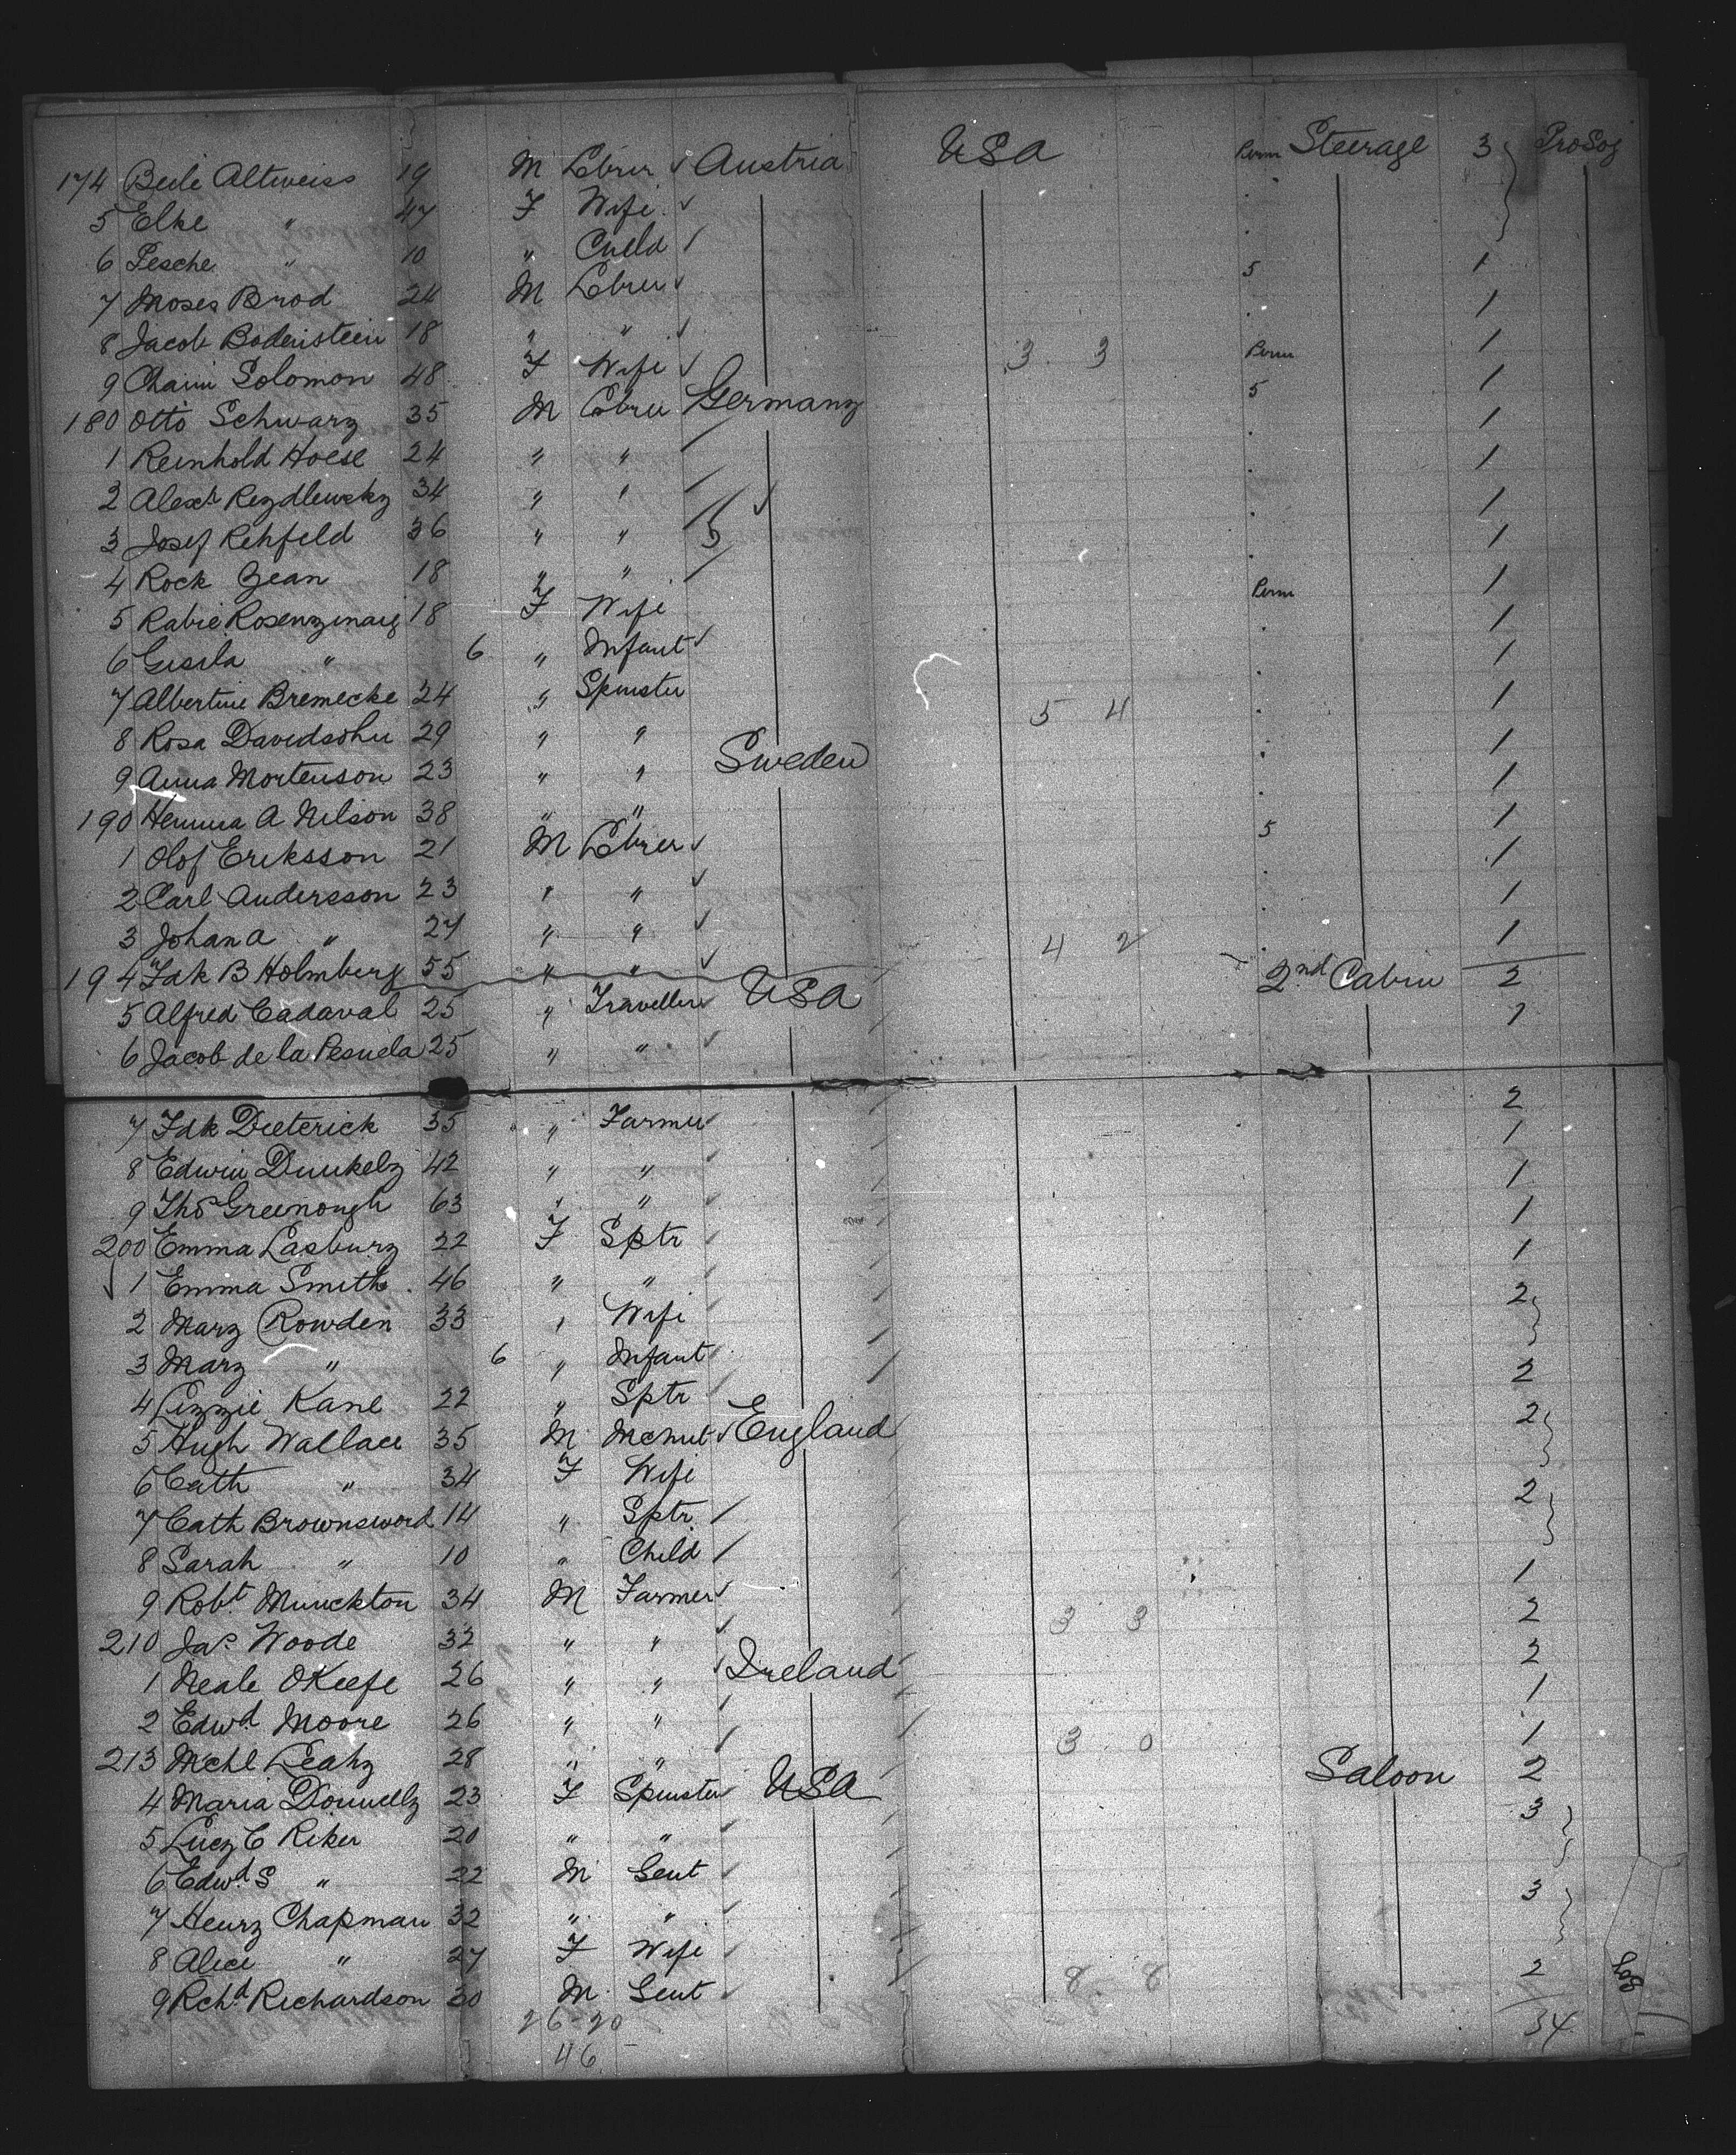 174 Beile Altweiss 19 M Lbrer Austria USA Perm Steerage 3 ProSoj
5 Elke " 47 F Wife
6 Pesche " 10 " Child 5 1
7 Moses Brod 24 M Lbrer 1
8 Jacob Bodenstein 18 " " 1
9 Chaim Solomon 48 F Wife 3 3 Perm 1
180 Otto Schwarz 35 M Lbrer Germany 5 1
1 Reinhold Hoese 24 " " 1
2 Alexr Rezdlewsky 34 " " 1
3 Josef Rehfeld 36 " " 5 1
4 Rock Jean 18 " " 1
5 Rabie 18 F Wife Perm 1
6 Gisela " 6 " Infant 1
7 Albertine Bremecke 24 " Spinster 1
8 Rosa Davidsohn 29 " " 5 4 1
9 Anna Mortenson 23 " " Sweden 1
190 Hemma A Nilson 38 " " 1
1 Olof Eriksson 21 M Lbrer 5 1
2 Carl Andersson 23 " " 1
3 Johan A " 27 " " 1
194 Fdk B Holmberg 55 " " 4 2 1
5 Alfred Cadaval 25 " Traveller USA 2nd Cabin 2
6 Jacob de la Pesuela 25 " " 1
7 Fdk Dieterick 35 " Farmer 2
8 Edwin Dunkely 42 " " 1
9 Thos Greenough 63 " " 1
200 Emma Lasbury 22 F Sptr 1
1 Emma Smith 46 " " 1
2 Mary Rowden 33 " Wife 2
3 Mary " 6 " Infant
4 Lizzie Kane 22 " Sptr 2
5 Hugh Wallace 35 M Mchnt England 2
6 Cath " 34 F Wife
7 Cath Brownsword 14 " Sptr 2
8 Sarah " 10 " Child
9 Robt Munckton 34 M Farmer 1
210 Jas Woode 32 " " 3 3 2
1 Neale OKeefe 26 " " Ireland 2
2 Edwd Moore 26 " " 1
213 Mchl Leahy 28 " " 3 0 1
4 Maria Donnelly 23 F Spinster USA Saloon 2
5 Lucy C Riker 20 " " 3
6 Edwd S " 22 M Gent
7 Henry Chapman 32 " " 3
8 Alice " 27 F Wife
9 Rchd Richardson 30 M Gent 8 8 2
26-20 34
46